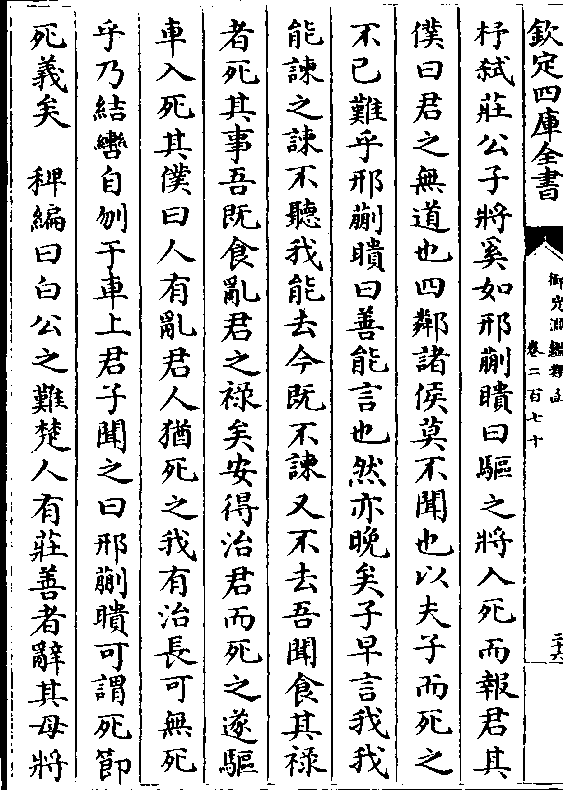 欽定四庫全書
御定淵鑑類函
卷二百七十
二十六
杼弑莊公子將奚如邢蒯瞶曰驅之將入死而報君其
僕曰君之無道也四鄰諸侯莫不聞也以夫子而死之
不已難乎邢蒯瞶曰善能言也然亦晚矣子早言我我
能諫之諫不聽我能去今既不諫又不去吾聞食其祿
者死其事吾既食亂君之祿矣安得治君而死之遂驅
車入死其僕曰人有亂君人猶死之我有治長可無死
乎乃結轡自刎于車上君子聞之曰邢蒯瞶可謂死節
死義矣　稗編曰白公之難楚人有莊善者辭其母將